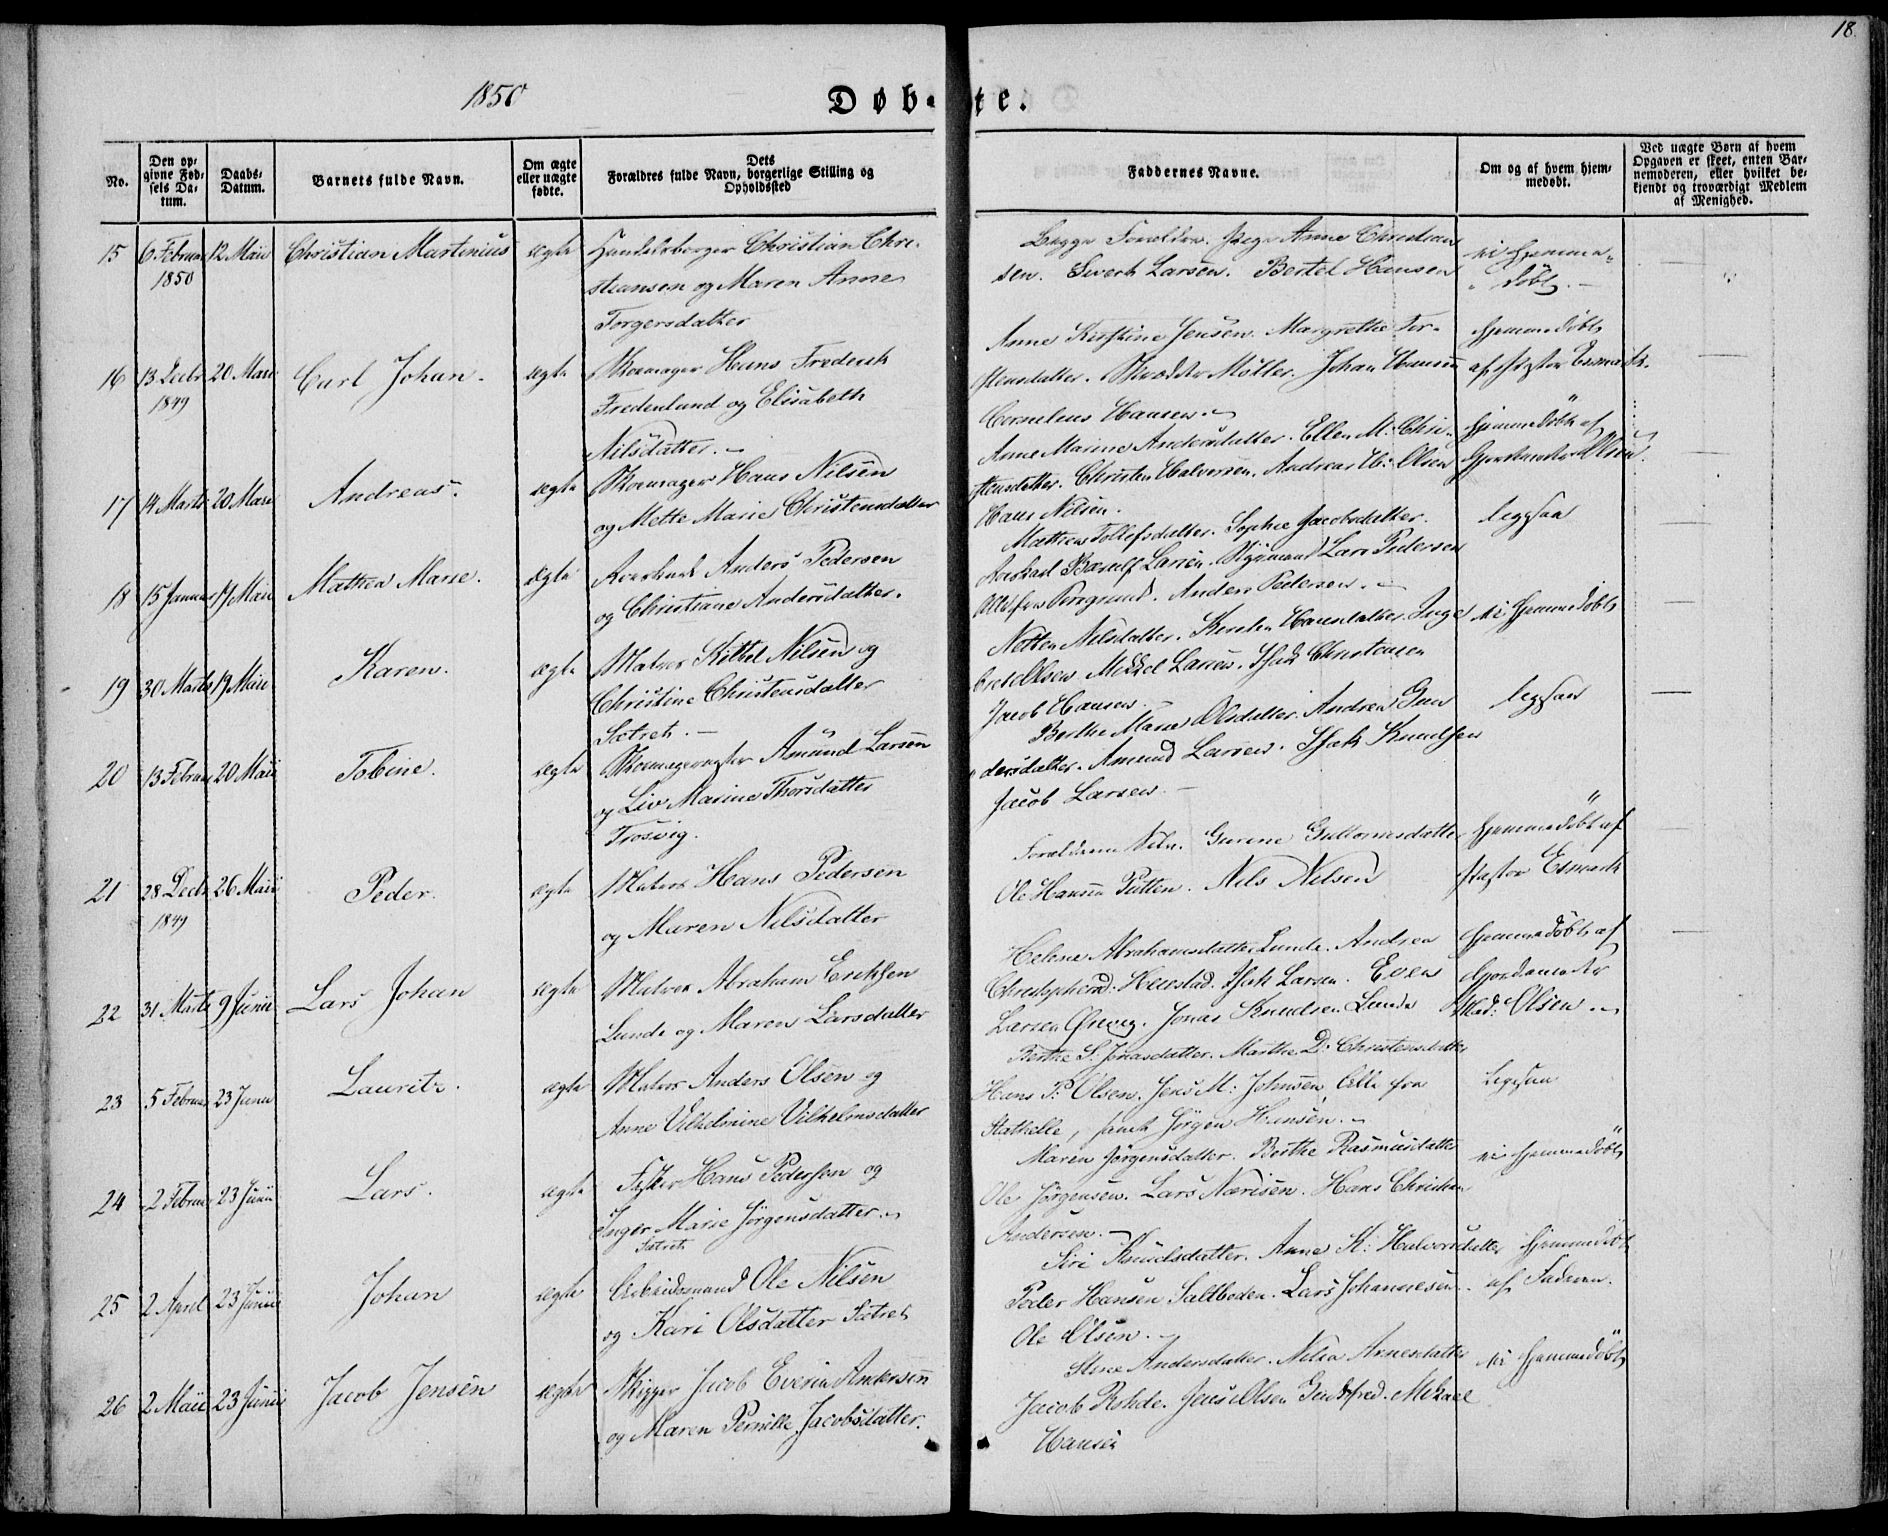 18.
1850
Døb-te.
No.
Den opgivne Fødsels Datum.
Daabs-Datum.
Barnets fulde Navn.
Om ægte eller uægte fødte.
Dets Forældres fulde Navn, borgerlige Stilling og Opholdssted
Faddernes Navne.
Om og af hvem hjemmedøbt.
Ved uægte Børn af hvem Opgaven er skeet, enten Barnemoderen, eller hvilket bekjendt og troværdigt Medlem af Menighed.
15 6 Februar 1850 12 Maii Christian Martinius ægte Handelsborger Christian Chri-
stiansen og Maren Anne
Torgersdatter
Begge Forældre. Anne Christian
sen. Sivert Larsen. Bertel Hansen
ei hjemme-
døbt.
16 13 Decbr 1849 20 Marts Carl Johan. ægte Skomager Hans Frederik
Fredenlund og Elisabeth
Nilsdatter.
Anne Kirstine Jensen. Margrethe Tor-
stensdatter. Møller. Johan Hansen
Cornelius Hansen.
hjemmedøbt
af Pastor Esmark.
17 14 Marts 20 Marts Andreas. ægte Skomager Hans Nilsen
og Mette Marie Christensdatter
Anne Marine Andersdatter. Ellen M. Chri-
stensdatter. Christen Halvorsen. Andreas H. Olsen
Hans Nilsen.
hjemmedøbt af
Gjordemoder Olsen.
18 15 Januar 19 Maii Mathea Marie. ægte Anders Pedersen
og Christiane Andersdatter.
Tollefsdatter. Sophie Jacobsdatter.
Larsen. Lars Pedersen
Anders Pedersen.
ligesaa
19 30 Marts 19 Maii Karen. ægte Matros Kittel Nilsen og
Christine Christensdatter
Sætret.
Nilsdatter. Hansdatter. Inge
bret Olsen. Mikkel Larsen. Isak Christensen
Jacob Hansen.
ei hjemmedøbt
20 13 Februar 20 Maii Tobine. ægte Amund Larsen
og Liv Marine Thorsdatter
Trosvig.
Berthe Marie Olsdatter. Andrea Gun
dersdatter. Amund Larsen. Isak Knudsen
Jacob Larsen.
ligesaa
21 28 Decbr 1849 26 Maii Peder. ægte Matros Hans Pedersen
og Maren Nilsdatter
Forældrene selv. Gurine Guttormsdatter
Ole Hansen Putten. Nils Nilsen
hjemmedøbt af
Pastor Esmark
22 31 Marts 9 Junii Lars Johan ægte Matros Abraham Erichsen
Lunde og Maren Larsdatter
Helene Abrahamsdatter Lunde. Andrea
Christophersd. Herrestad. Isak Larsen. Even
Larsen Ørevig. Jonas Knudsen Lunde
hjemmedøbt af
Gjordemoder
Mad: Olsen
23 5 Februar 23 Junii Lauritz. ægte Matros Anders Olsen og
Anne Vilhelmine Vilhelmsdatter
Berthe S. Jonasdatter. Marthe D. Christensdatter
Hans P. Olsen. Jens M. Johnsen, Alle fra
Stathelle, samt Jørgen Hansen.
Ligesaa
24 2 Februar 23 Junii Lars. ægte Fisker Hans Pedersen og
Inger Marie Jørgensdatter.
Sætret
Maren Jørgensdatter. Berthe Rasmusdatter
Ole Jørgensen. Lars Nærisen. Hans Christian
Andersen.
ei hjemmedøbt
25 2 April 23 Junii Johan ægte Arbeidsmand Ole Nilsen
og Kari Olsdatter Sætret
Siri Knudsdatter. Anne K. Halvorsdatter
Peder Hansen Saltboden. Lars Johannesen.
Ole Olsen.
hjemmedøbt
af Faderen.
26 2 Maii 23 Junii Jacob Jensen ægte Skipper Jacob Evenin Andersen
og Maren Pernille Jacobsdatter.
Stine Andersdatter. Nilia Arnesdatter
Jacob Rohde. Jens Olsen Mikael
Hansen
ei hjemmedøbt